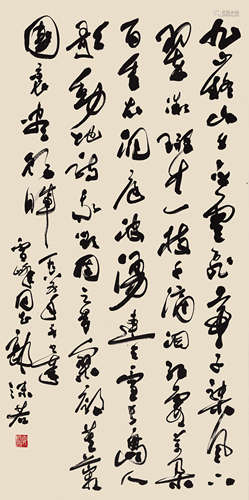 九嶷山上白雲飛帝子乘風下
翠微斑竹一枝千滴泪红霞萬朵
百重衣洞庭波湧連天雪長島人
歌動地詩我欲因之夢寥廓芙蓉
國裏盡朝暉
雪峰同志 郭沫若